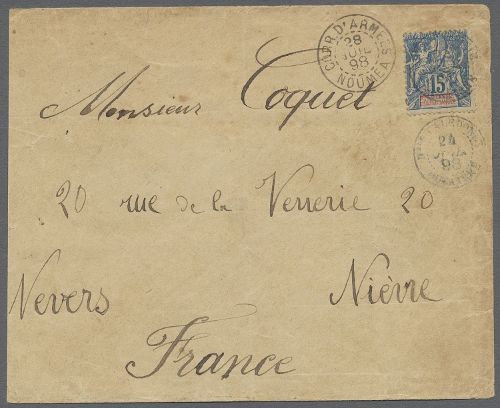 CORR.D'ARMÉES
28
JUIL
98
NOUMEA
15
Monsieur Coquet
24
98
20 rue de la Verrerie 20
Nevers Nièvre
France